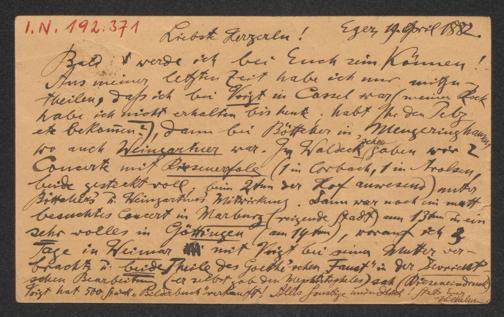 I.N. 192.371
Liebste Herzerln! Eger, 19. April 1882.
Bald werde ich bei Euch sein können!
Aus meiner letzten Zeit habe ich nur mitzu-
theilen, daß ich bei Voigt in Cassel war (meinen Rock
habe ich nicht erhalten bis heut, habt Ihr den Pelz
etc bekommen?), dann bei Böttcher in Mengeringhausen,
wo auch Weingartner war. In Waldeck gaben wir 2
Concerte mit Riesenerfolg (1 in Corbach, 1 in Arolsen,
beide gesteckt voll, beim 2ten der Hof anwesend) unter
Böttchers u. Weingartners Mitwirkung. Dann war noch ein matt
besuchtes Concert in Marburg (reizende Stadt) am 13ten u. ein
sehr volles in Göttingen (am 14ten), worauf ich 3
Tage in Weimar mit Voigt bei seiner Mutter ver-
brachte u. beide Theile des Goethe'schen "Faust" in der Devrient'
schen Bearbeitung (er selbst gab den Mephistopheles) sah (Rieseneindruck).
Voigt hat 500 "Bilderbuch" verkauft! Alles Sonstige mündlich! Stets Euer